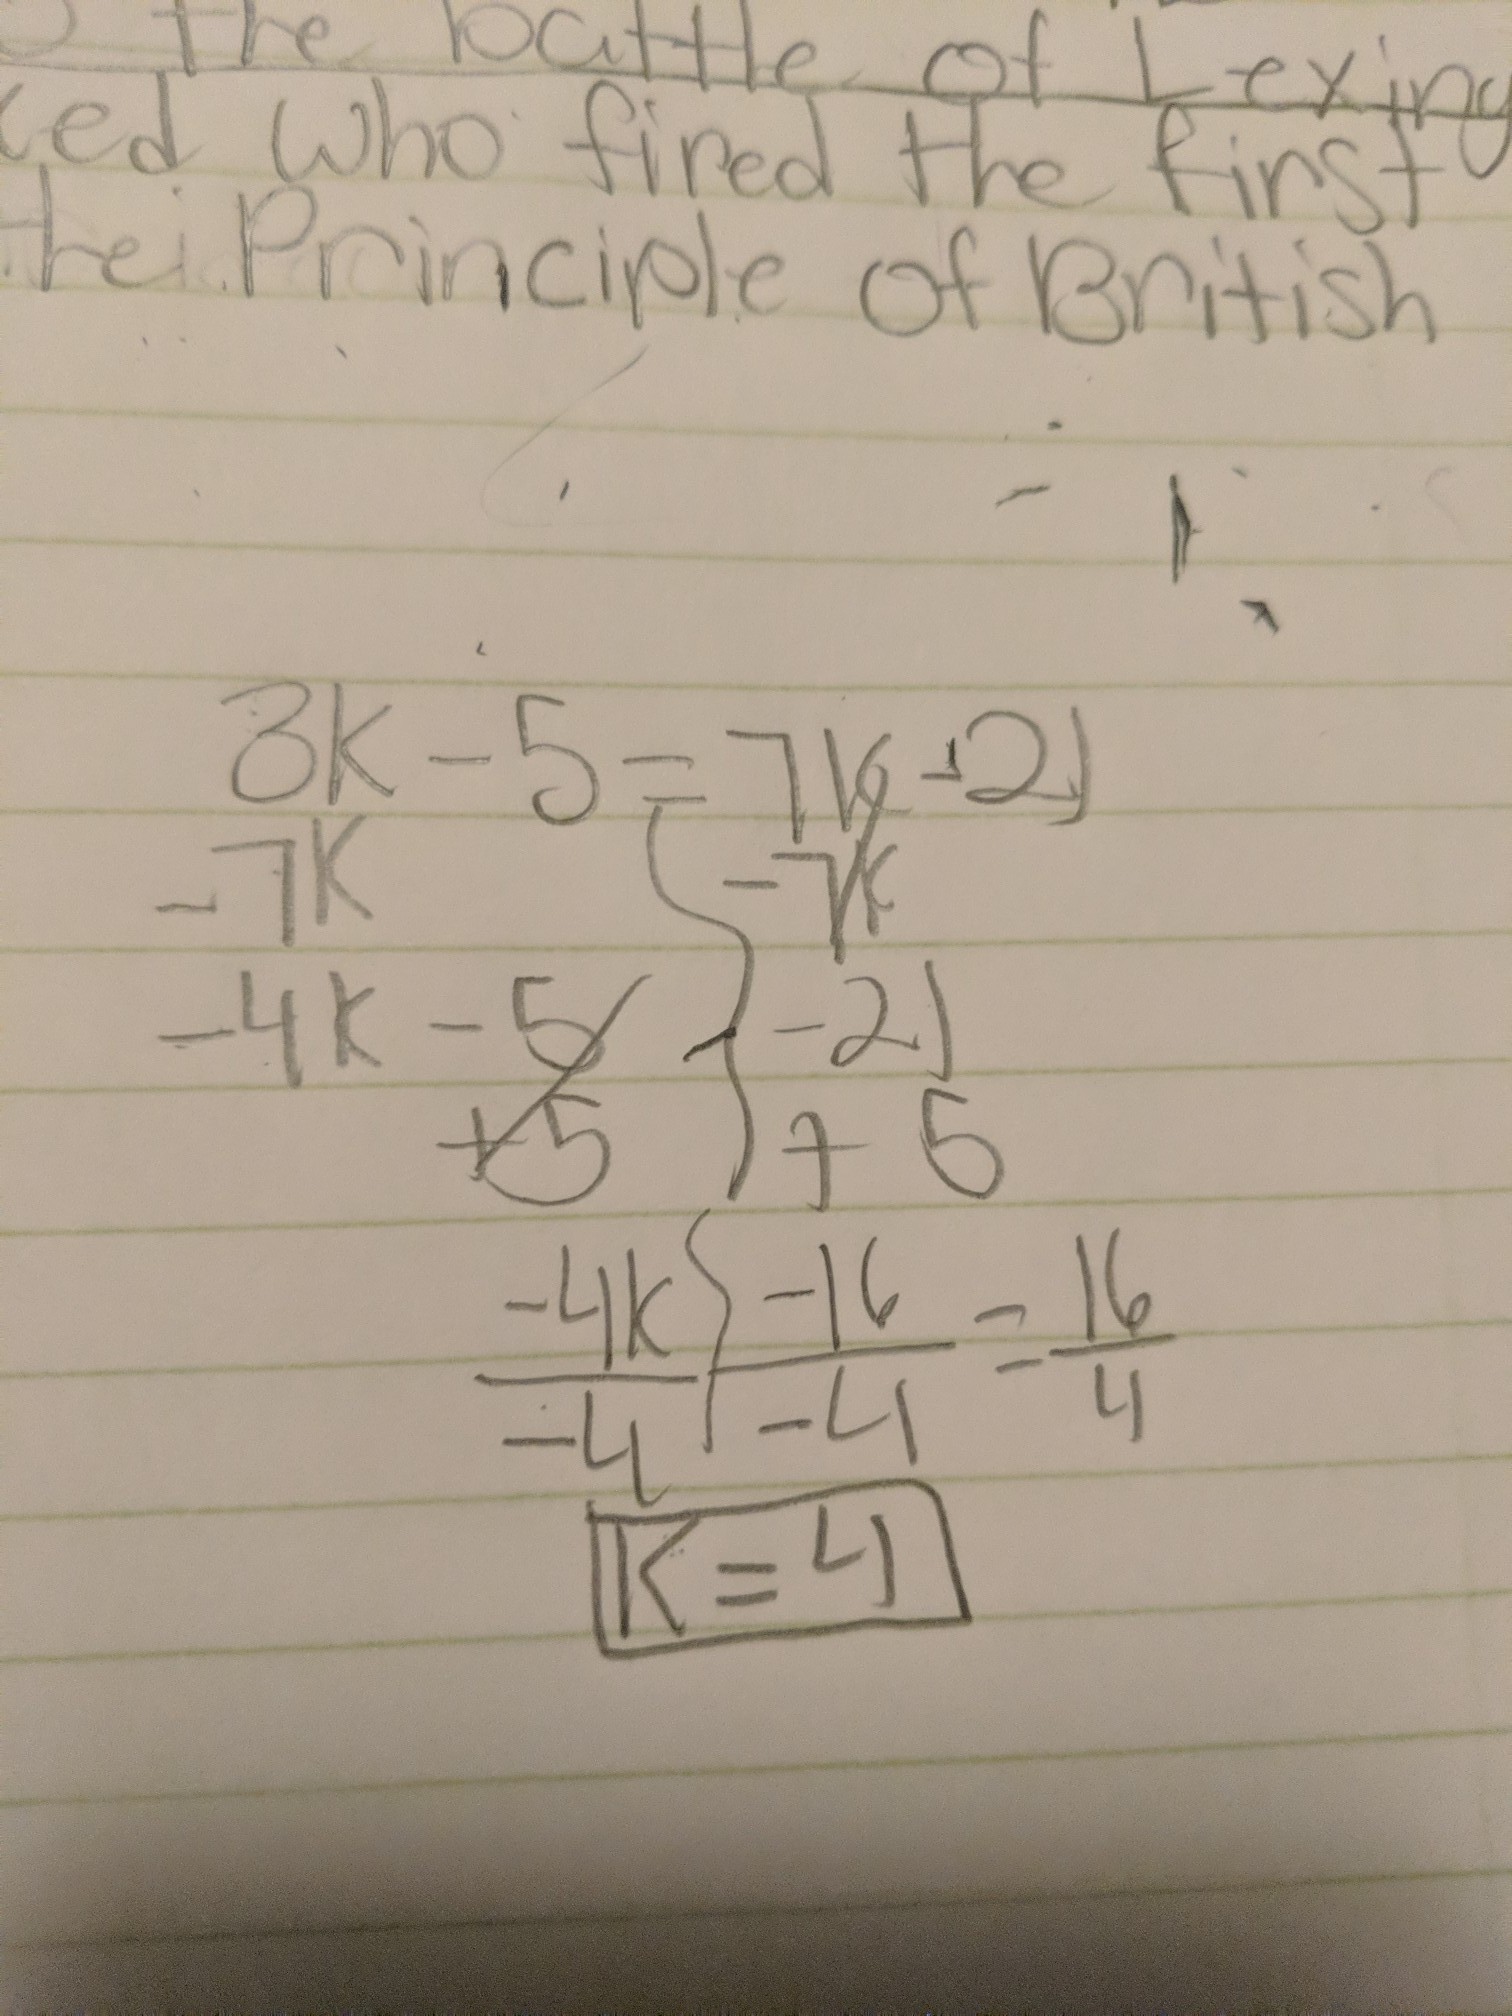 the battle of Lexing
ked who fired the first
the Principle of British
3k - 5 = 7k - 21
-7k -7k
-4k - 5 -21
+5 + 5
-4k/-4 -16/-4 = 16/4
K = 4